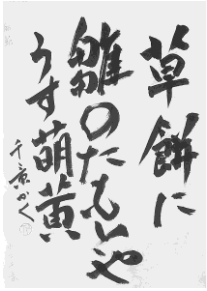 草餅に
雛のたむけや
うす萌黄
千京かく